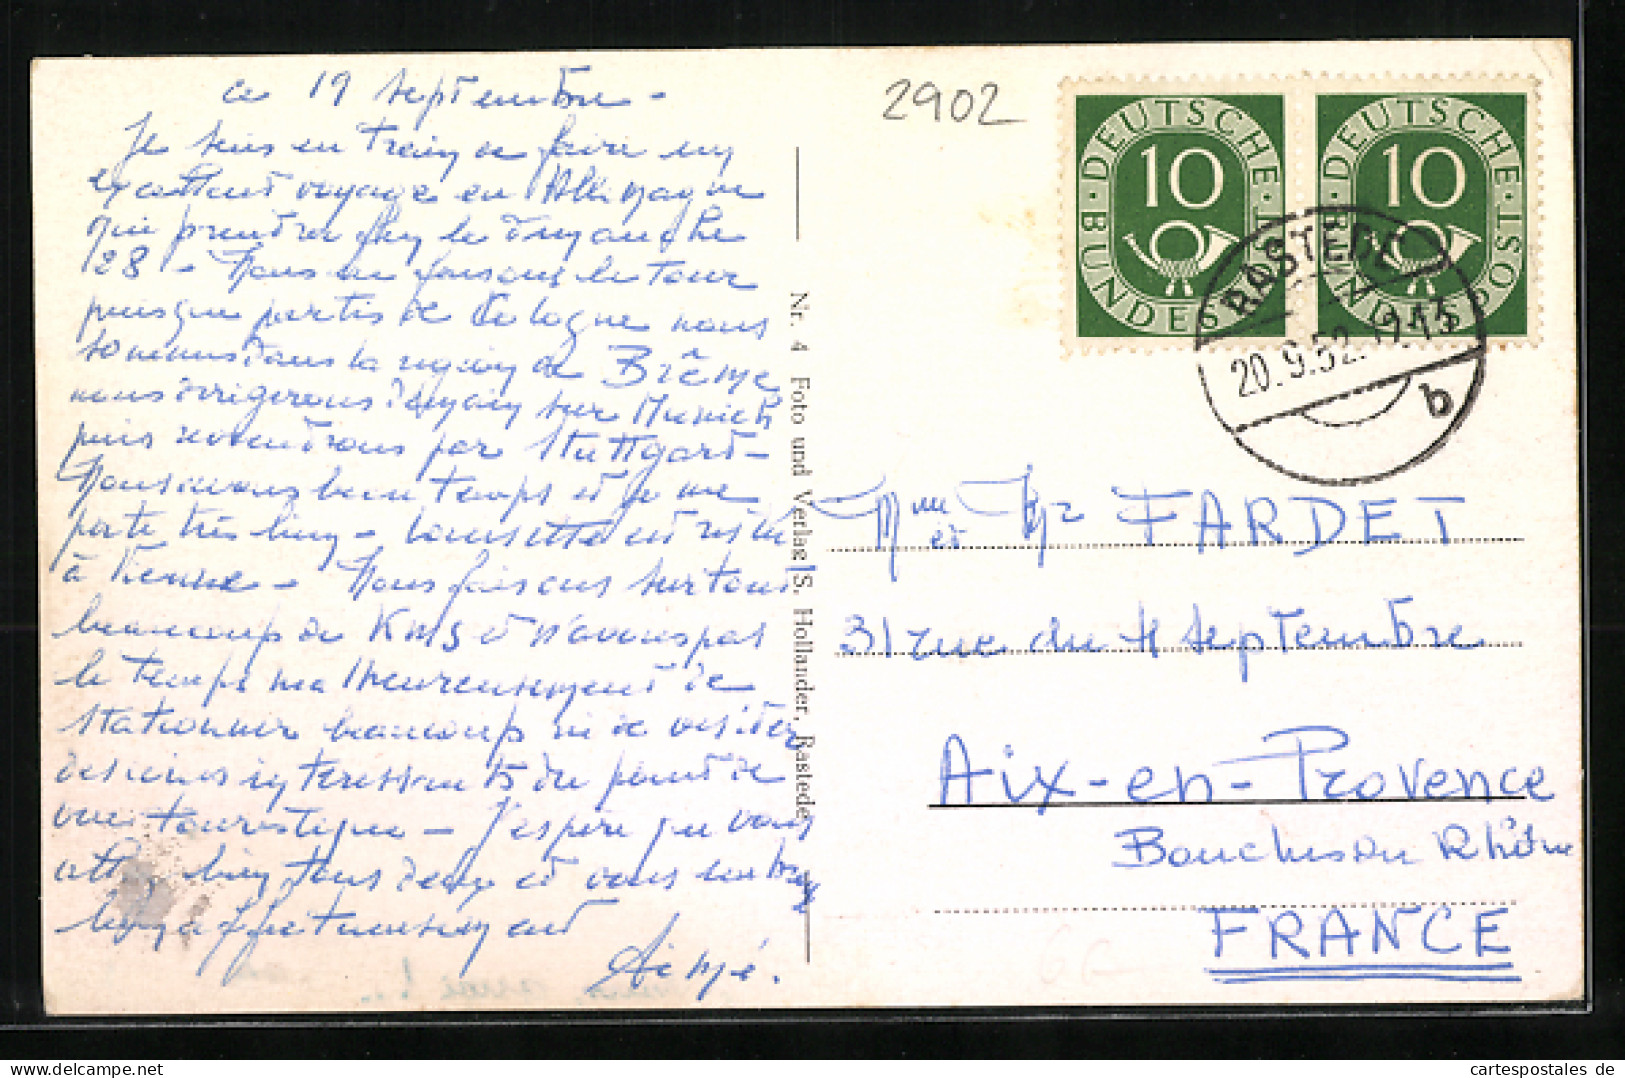 ce 19 septembre -
Je suis en train de faire un
excellent voyage en Allemagne
qui prendra fin le dimanche
28 - Nous en faisons le tour
puisque partis de Cologne nous
sommes dans la région de Brême,
nous dirigerons demain sur Munich
puis reviendrons par Stuttgart -
Nous avons beau temps et je me
porte très bien - Louisette est restée
à Vienne - Nous faisons surtout
beaucoup de KMS et n'avons pas
le temps malheureusement de
stationner beaucoup ni de visiter
des coins intéressants du point de
vue touristique - J'espère que vous
allez bien tous deux et vous embrasse
bien affectueusement
Aimé.
Nr. 4 Foto und Verlag S. Hollander, Rastede
2902
DEUTSCHE BUNDESPOST
10
DEUTSCHE BUNDESPOST
10
RASTEDE
20.9.52
b
Mme et Mr FARDET
31 rue du 4 septembre
Aix-en-Provence
Bouches du Rhône
FRANCE
cartespostales de